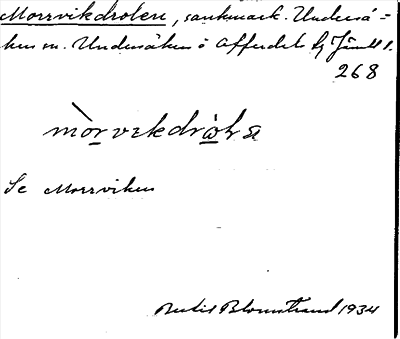 Morrvikdroten, sankmark. Underså=
kers sn. Undersåkers o Offerdals tg Jämtl l.
268
mòrvikdròtṇ
Se Morrviken
Bertil Blomstrand 1934